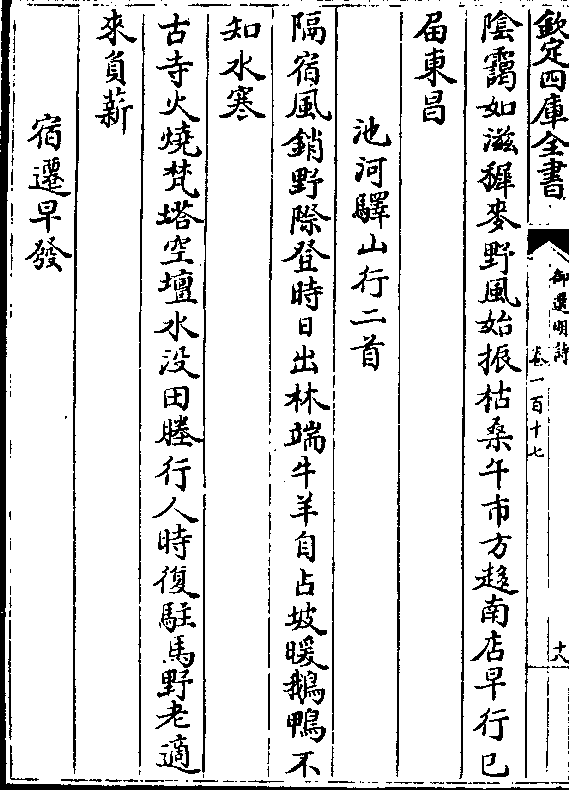 欽定四庫全書
御選明詩
卷一百十七
十八
陰靄如滋穉麥野風始振枯桑午市方趍南店早行已
届東昌
池河驛山行二首
隔宿風銷野際登時日出林端牛羊自占坡暖鵝鴨不
知水寒
古寺火燒梵塔空壇水没田塍行人時復駐馬野老適
來負薪
宿遷早發